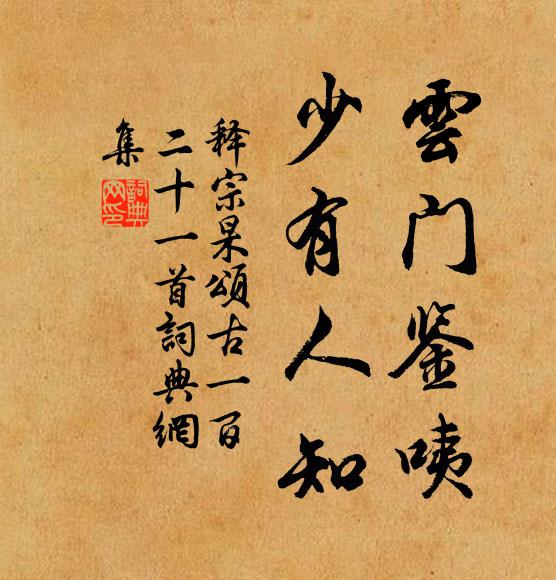 雲门鉴咦
少有人知
释宗杲頌古一百
二十一首詞典網
集
詞典网印